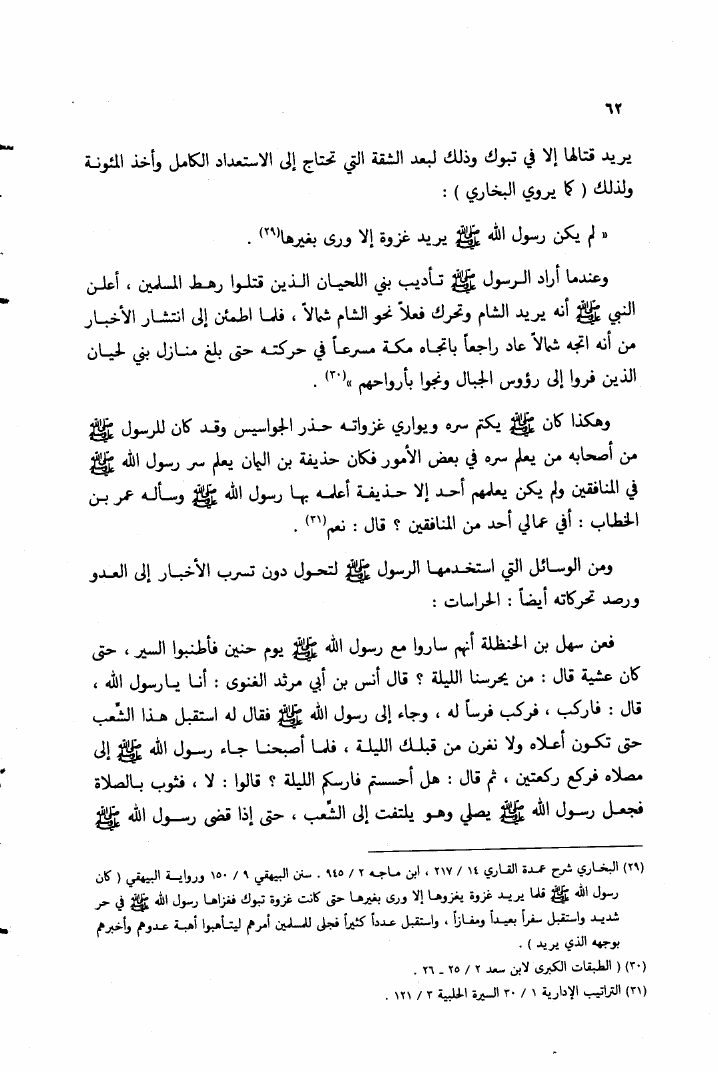 ٦٢
يريد قتالها إلا في تبوك وذلك لبعد الشقة التي تحتاج إلى الاستعداد الكامل وأخذ المئونة
ولذلك ( كما يروي البخاري ) :
« لم يكن رسول الله ﷺ يريد غزوة إلا ورى بغيرها(٢٩) .
وعندما أراد الرسول ﷺ تأديب بني اللحيان الذين قتلوا رهط المسلمين ، أعلن
النبي ﷺ أنه يريد الشام وتحرك فعلاً نحو الشام شمالاً ، فلما اطمئن إلى انتشار الأخبار
من أنه اتجه شمالاً عاد راجعاً باتجاه مكة مسرعاً في حركته حتى بلغ منازل بني لحيان
الذين فروا إلى رؤوس الجبال ونجوا بأرواحهم »(٣٠) .
وهكذا كان ﷺ يكتم سره ويواري غزواته حذر الجواسيس وقد كان للرسول ﷺ
من أصحابه من يعلم سره في بعض الأمور فكان حذيفة بن اليمان يعلم سر رسول الله ﷺ
في المنافقين ولم يكن يعلمهم أحد إلا حذيفة أعلمه بها رسول الله ﷺ وسأله عمر بن
الخطاب : أفي عمالي أحد من المنافقين ؟ قال : نعم(٣١) .
ومن الوسائل التي استخدمها الرسول ﷺ لتحول دون تسرب الأخبار إلى العدو
ورصد تحركاته أيضاً : الحراسات :
فعن سهل بن الحنظلة أنهم ساروا مع رسول الله ﷺ يوم حنين فأطنبوا السير ، حتى
كان عشية قال : من يحرسنا الليلة ؟ قال أنس بن أبي مرثد الغنوى : أنا يارسول الله ،
قال : فاركب ، فركب فرساً له ، وجاء إلى رسول الله ﷺ فقال له استقبل هذا الشِّعب
حتى تكون أعلاه ولا نغرن من قبلك الليلة ، فلما أصبحنا جاء رسول الله ﷺ إلى
مصلاه فركع ركعتين ، ثم قال : هل أحسستم فارسكم الليلة ؟ قالوا : لا ، فثوب بالصلاة
فجعل رسول الله ﷺ يصلي وهو يلتفت إلى الشِّعب ، حتى إذا قضى رسول الله ﷺ
(٢٩) البخاري شرح عمدة القاري ١٤ / ٢١٧ ، ابن ماجه ٢ / ٩٤٥ . سنن البيهقي ٩ / ١٥٠ ورواية البيهقي ( كان
رسول الله ﷺ قلما يريد غزوة يغزوها إلا ورى بغيرها حتى كانت غزوة تبوك فغزاها رسول الله ﷺ في حر
شديد واستقبل سفراً بعيداً ومفازاً ، واستقبل عدداً كثيراً فجلى للمسلمين أمرهم ليتأهبوا أهبة عدوهم وأخبرهم
بوجهه الذي يريد ) .
(٣٠) ( الطبقات الكبرى لابن سعد ٢ / ٢٥ ـ ٢٦ .
(٣١) التراتيب الإدارية ١ / ٣٠ السيرة الحلبية ٣ / ١٢١ .